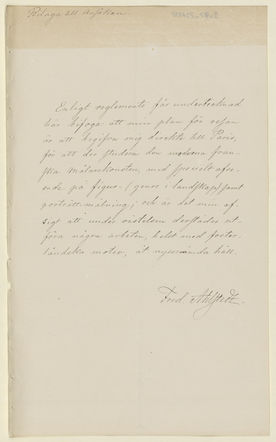 Bilaga till Ansökan.
Enligt reglemente får undertecknad
här bifoga att min plan för resan
är att begifva mig direkte till Paris,
för att der studera den moderna fran-
ska Målarekonsten, med speciell afse-
ende på figur- (genre i landskap) samt
porträtt-målning; och är det min af-
sigt att under vistelsen derstädes ut-
föra några arbeten, helst med foster-
ländska motiv, åt nyssnämnda håll.
Fred. Ahlstedt.